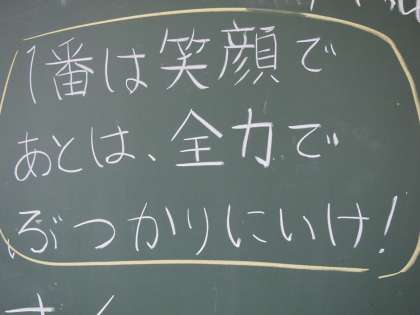 1番は笑顔で
あとは、全力で
ぶつかりにいけ!